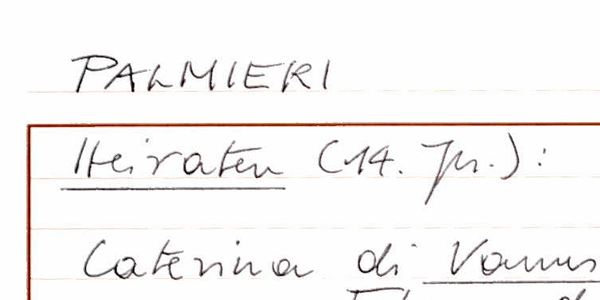 PALMIERI
Heiraten (14. Jh.):
Caterina di Vannis